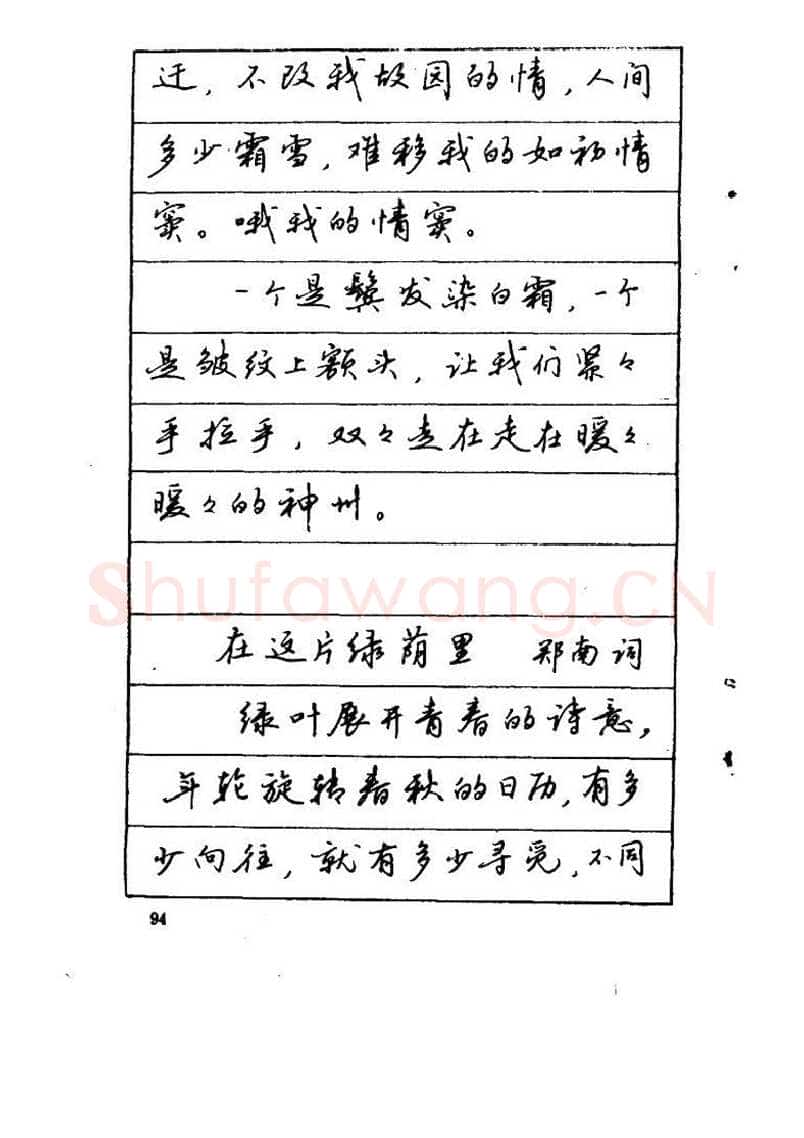 迁，不改我故园的情，人间
多少霜雪，难移我的如初情
窦。哦我的情窦。
一个是鬓发染白霜，一个
是皱纹上额头，让我们紧々
手拉手，双々走在走在暖々
暖々的神州。
Shufawang.CN
在这片绿荫里 郑南词
绿叶展开青春的诗意，
年轮旋转春秋的日历，有多
少向往，就有多少寻觅，不同
94